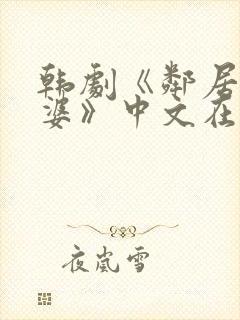 韩劇《鄰居
婆》中文在
夜嵐雪